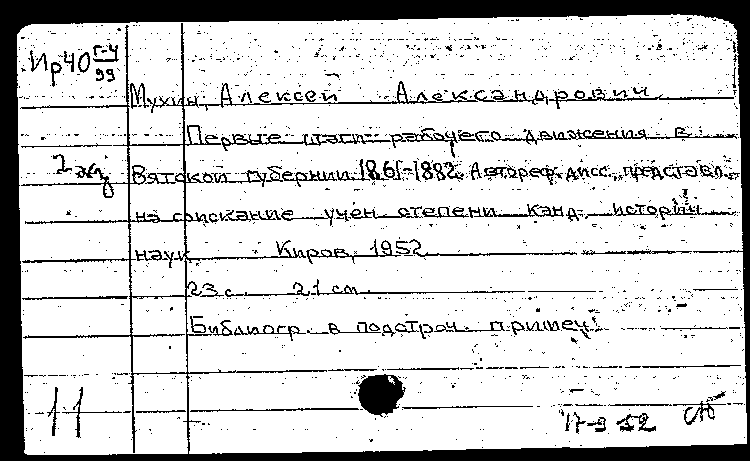 Ир40 Г-4
99
Мухин, Алексей Александрович
Первые шаги рабочего движения в
2 экз Вятской губернии 1861-1882. Автореф. дисс., представл.
на соискание учен степени канд. историч
наук. Киров, 1952
23 с. 21 см.
Библиогр. в подстроч. примеч.
11
17-9 52